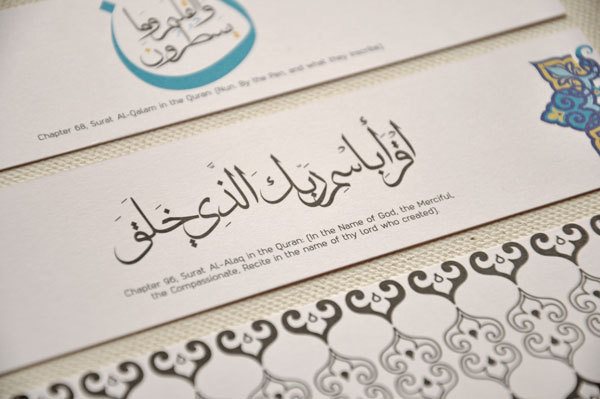 ن والقلم وما
يسطرون
Chapter 68, Surat AL-Qalam in the Quran: (Nun. By the Pen, and what they inscribe)
اقْرَأْ بِاسْمِ رَبِّكَ الَّذِي خَلَقَ
Chapter 96, Surat AL-Alaq in the Quran: (In the Name of God, the Merciful,
the Compassionate, Recite in the name of thy lord who created).